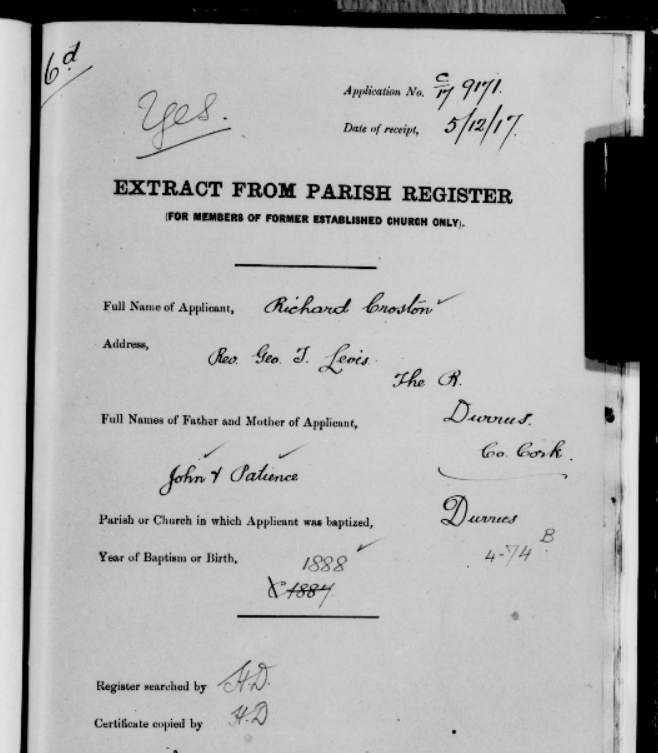 6d
Application No. C/17 9171.
Yes.
Date of receipt, 5/12/17.
EXTRACT FROM PARISH REGISTER
(FOR MEMBERS OF FORMER ESTABLISHED CHURCH ONLY).
Full Name of Applicant, Richard Croston
Address,
Rev. Geo. T. Levis.
The R.
Durrus.
Full Names of Father and Mother of Applicant,
Co. Cork.
John & Patience
Parish or Church in which Applicant was baptized, Durrus
Year of Baptism or Birth, 1888
4-74 B
C 1887
Register searched by H.D.
Certificate copied by H.D